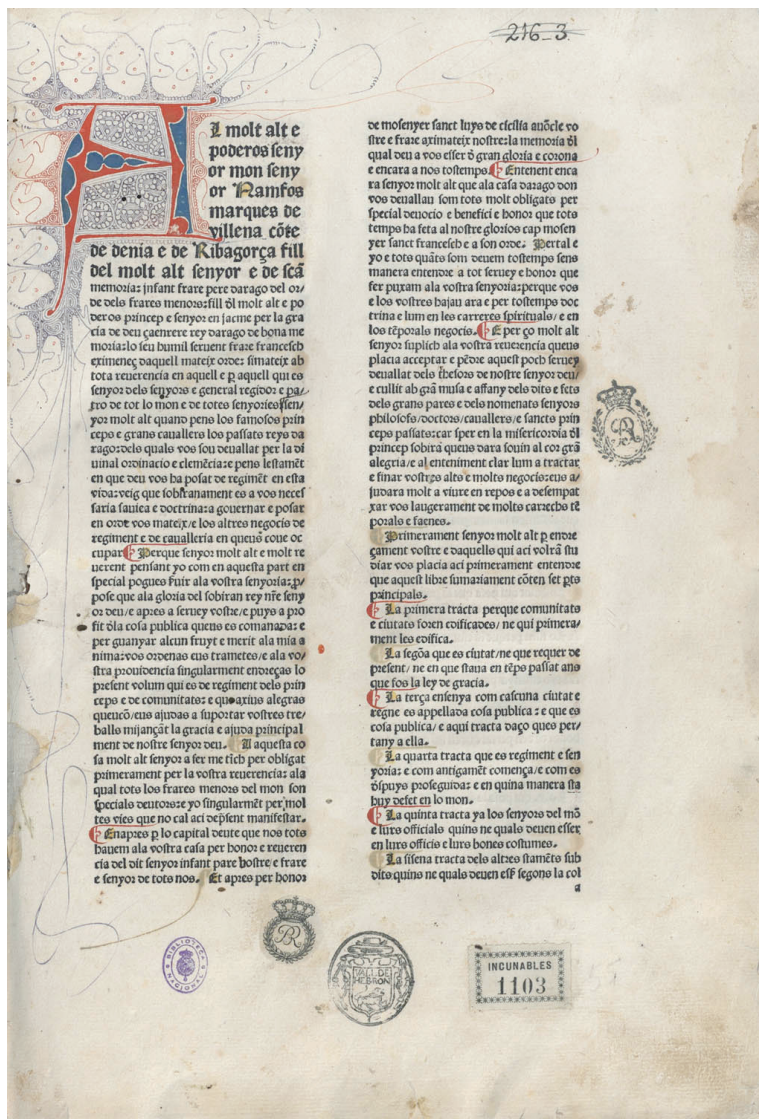 216-3
Al molt alt e
poderos seny
or mon seny
or Namfos
marques de
villena cõte
de denia e de Ribagorça fill
del molt alt senyor e de scã
memoria: jnfant frare pere darago del or/
de dels frares menors: fill ðl molt alt e po
deros princep e senyor en jacme per la gra
cia de deu çaenrere rey darago de bona me
moria: lo seu humil seruent frare francesch
eximeneç daquell mateix orde: simateix ab
tota reuerencia en aquell e p aquell qui es
senyor dels senyors e general regidor e pa/
tro de tot lo mon e de totes senyories sen/
yor molt alt quand pens los famosos prin
ceps e grans cauallers los passats reys da
rago: dels quals vos sou deuallat per la di
uinal ordinacio e clemēcia: e pens lestamēt
en que deu vos ha posat de regimēt en esta
vida: veig que sobiranament es a vos neces
saria sauiea e doctrina: a gouernar e posar
en orde vos mateix/e los altres negocis de
regiment e de caualleria en queus coue oc
cupar Perque senyor molt alt e molt re
uerent pensant yo com en aquesta part en
special pogues ſuir ala vostra senyoria: p
pose que ala gloria del sobiran rey nr̃e seny
or deu/e apres a seruey vostre/e puys a pro
fit ðla cosa publica queus es comanada: e
per guanyar alcun fruyt e merit ala mia a
nima: vos ordenas eus trametes/e ala vo/
stra prouidencia singularment endreças lo
present volum qui es de regiment dels prin
ceps e de comunitats: e que axius alegras
queucõ/eus ajudas a suportar vostres tre/
balls mijançãt la gracia e ajuda principal
ment de nostre senyor deu. A aquesta co
sa molt alt senyor a fer me tīch per obligat
primerament per la vostra reuerencia: ala
qual tots los frares menors del mon son
specials deutors: e yo singularmēt per mol
tes vies que no cal aci depēsent manifestar.
Enapres p lo capital deute que nos tots
hauem ala vostra casa per honor e reueren
cia del dit senyor infant pare vostre/e frare
e senyor de tots nos. Et apres per honor
de mosenyer sanct luys de cicilia auõcle vo
stre e frare aximateix nostre: la memoria ðl
qual deu a vos esser ð gran gloria e corona
e encara a nos tostemps. Entenent enca
ra senyor molt alt que ala casa darago don
vos deuallau som tots molt obligats per
special deuocio e benefici e honor que tots
temps ha feta al nostre glorios cap mosen
yer sanct francesch e a son orde. Pertal e
yo e tots quãts som deuem tostemps sens
manera entendre a tot seruey e honor que
fer puxam ala vostra senyoria: perque vos
e los vostres hajau ara e per tostemps doc
trina e lum en les carreres spirituals/e en
los tēporals negocis. E per ço molt alt
senyor suplich ala vostra reuerencia queus
placia acceptar e pēdre aquest poch seruey
deuallat dels thesors de nostre senyor deu/
e cullit ab grã musa e affany dels dits e fets
dels grans pares e dels nomenats senyors
philosofs/doctors/cauallers/e sancts prin
ceps passats: car sper en la misericordia ðl
princep sobirã queus dara souin al cor grã
alegria/e al enteniment clar lum a tractar
e finar vostres alts e molts negocis: eus a/
judara molt a viure en repos e a desempat
xar vos laugerament de molts carrechs tē
porals e faenes.
Primerament senyor molt alt p endre
çament vostre e daquells qui aci volrã stu
diar vos placia aci primerament entendre
que aquest libre sumariament cõten set pts
principals.
La primera tracta perque comunitats
e ciutats foren edificades/ ne qui primera/
ment les edifica.
La segõa que es ciutat/ne que requer de
present/ ne en que staua en tēps passat ans
que fos la ley de gracia.
La terça ensenya com cascuna ciutat e
regne es appellada cosa publica: e que es
cosa publica/ e aqui tracta daço ques per/
tany a ella.
La quarta tracta que es regiment e sen
yoria: e com antigamēt començã/e com es
ðspuys proseguida: e en quina manera sta
huy deſet en lo mon.
La quinta tracta ya los senyors del mõ
e lurs officials quins ne quals deuen esser
en lurs officis e lurs bones costumes.
La sisena tracta dels altres stamēts sub
dits quins ne quals deuen esſ segons la col
a
BR
BR
BIBLIOTECA NACIONAL
VALL DE
HEBRON
INCUNABLES
1103